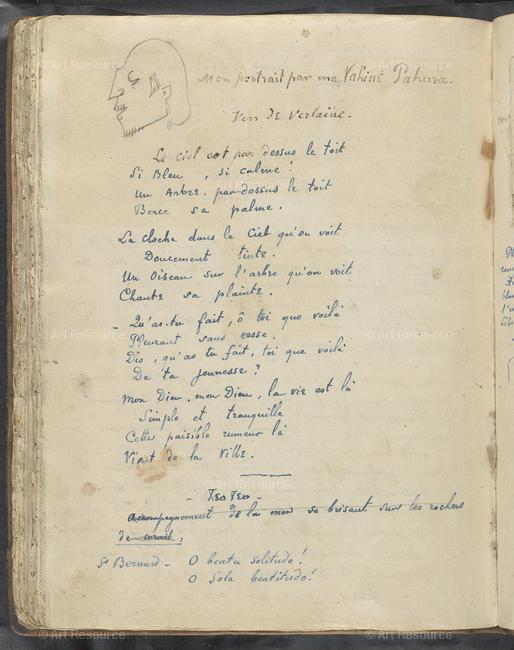 Mon portrait par ma Vahiné Pahura.
Vers De Verlaine.
Le Ciel est par dessus le toit
Si Bleu, si calme!
Un Arbre. par dessus le toit
Berce sa palme.
La cloche dans le Ciel qu'on voit
Doucement tinte.
Un Oiseau sur l'arbre qu'on voit
Chante sa plainte.
_ Qu'as-tu fait, ô toi que voilà
Pleurant sans cesse.
Dis, qu'as tu fait, toi que voilà
De ta jeunesse?
Mon Dieu, mon Dieu, la vie est là
Simple et tranquille
Cette paisible rumeur là
Vient de la Ville.
Accompagnement de la mer se brisant sur les rochers
de corail,
St Bernard _ O beata solitudo!
O Sola beatitudo!
© Art Resource